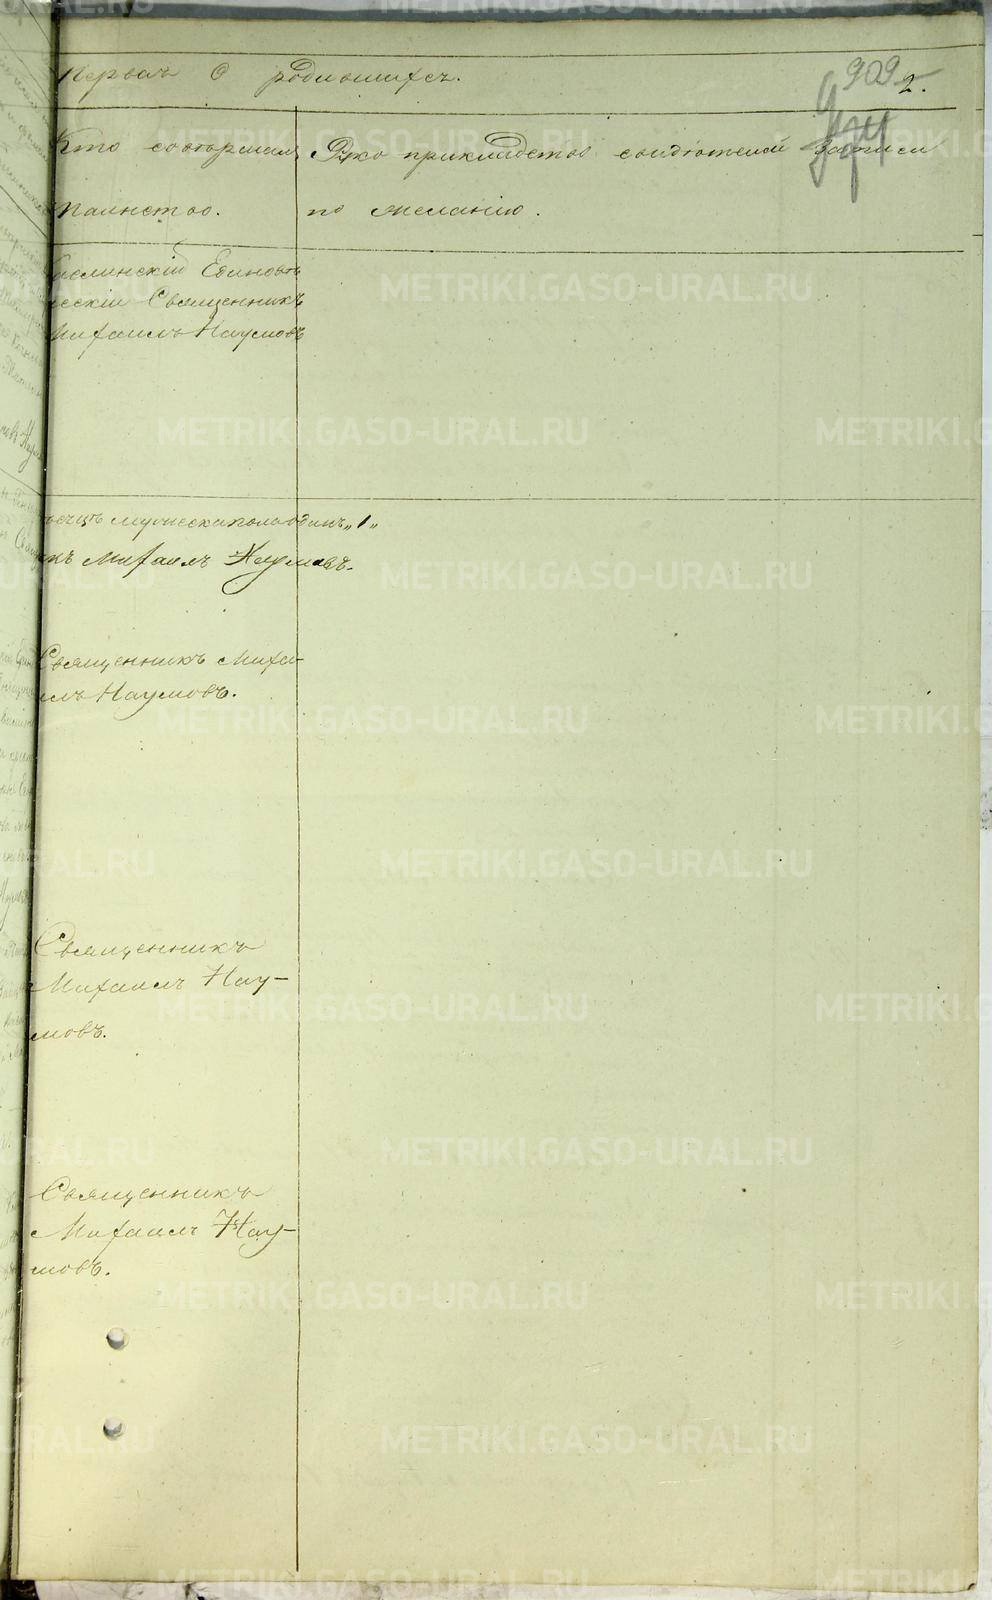 первая о родившихся.
909
2.
Кто совершал
таинство.
Рукоприкладство свидѣтелей записи
по желанію.
Единовѣр
ческій Священникъ
Михаилъ Наумовъ
мужеска пола одинъ „1„
Михаилъ Наумовъ.
Священникъ Миха-
илъ Наумовъ.
Священникъ
Михаилъ Нау-
мовъ.
Священникъ
Михаилъ Нау-
мовъ.
METRIKI.GASO-URAL.RU